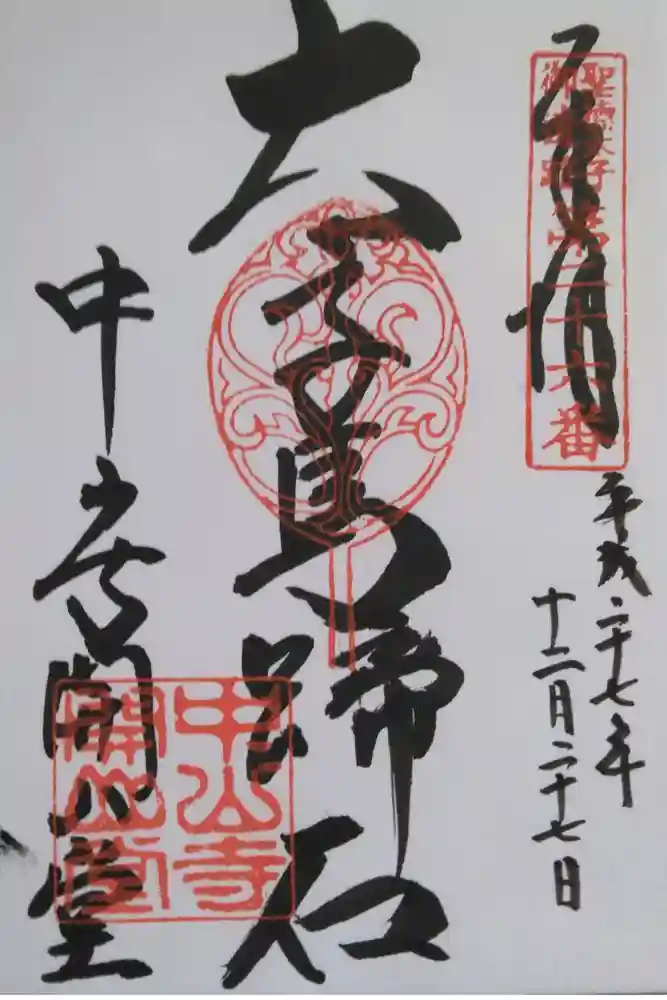 奉拝
聖徳太子
御遺跡
第二十六番
平成二十七年
十二月二十七日
太子馬蹄石
中山寺開山堂
中山寺
開山堂